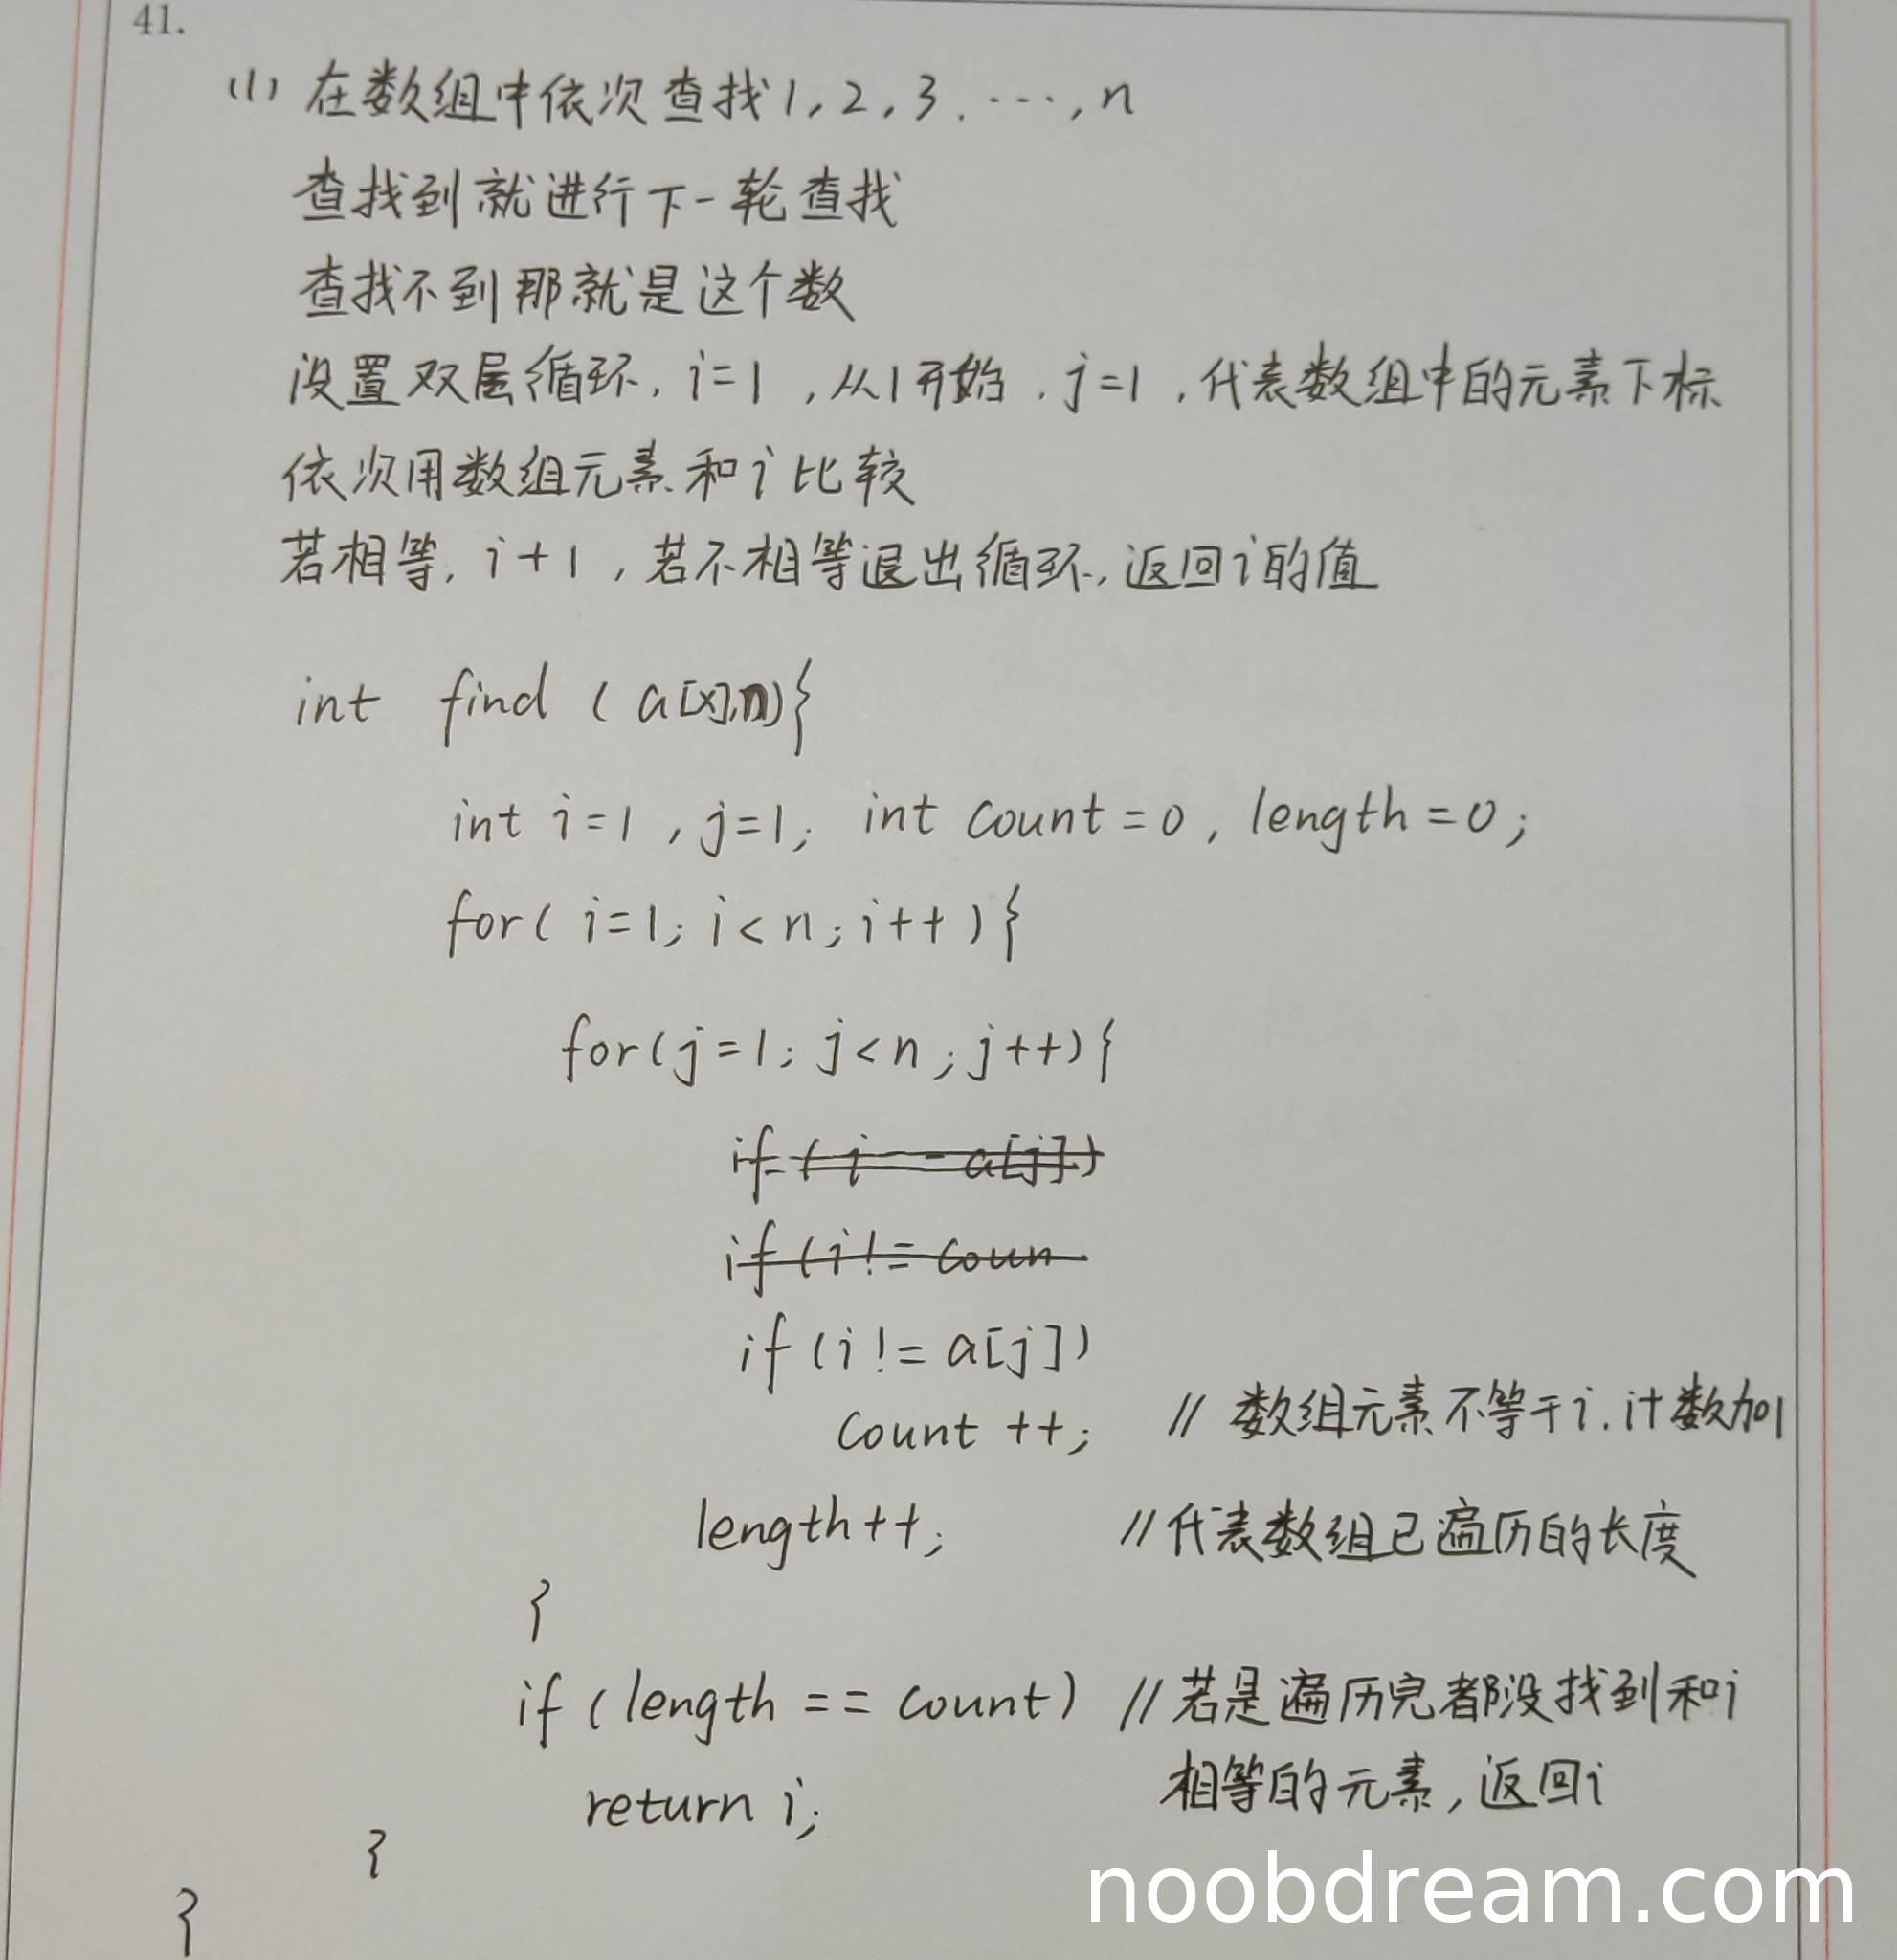 41.
(1) 在数组中依次查找1,2,3.…,n
查找到就进行下一轮查找
查找不到那就是这个数
设置双层循环,i=1,从1开始.j=1,代表数组中的元素下标
依次用数组元素和i比较
若相等,i+1,若不相等退出循环,返回i的值
int find (a[x],n){
int i=1,j=1; int count=0,length=0;
for(i=1;i<n;i++){
for(j=1;j<n;j++){
if(i!=coun
if(i!=a[j])
count++; //数组元素不等于i.计数加1
length++; //代表数组已遍历的长度
}
if(length==count) //若是遍历完都没找到和i
相等的元素,返回i
return i;
}
}
noobdream.com